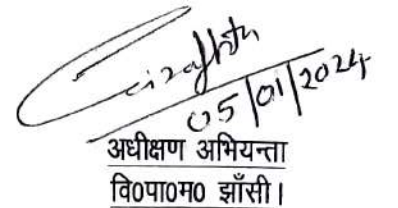 05/01/2024
अधीक्षण अभियन्ता
वि०पा०म० झाँसी।